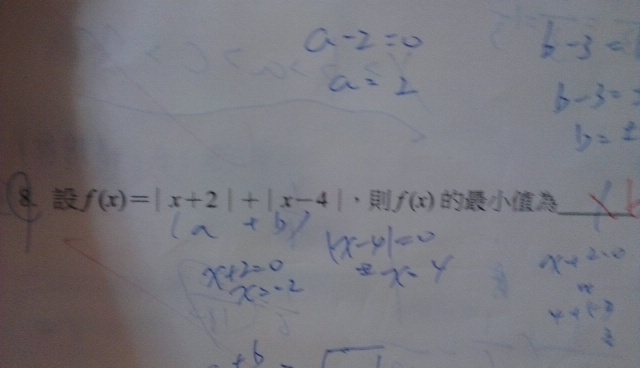 a-2=0
a=2
b-3=
b-3=
b=±
8. 設f(x)=|x+2|+|x-4|,則f(x)的最小值為
|a+b|
|x-4|=0
x=4
x+2=0
x=-2
x+2=0